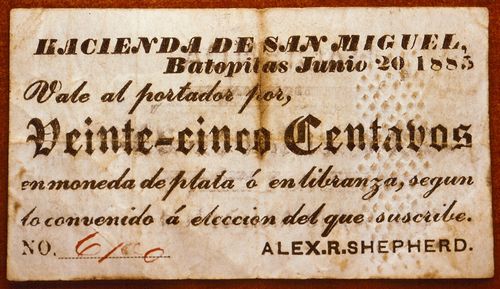 HACIENDA DE SAN MIGUEL,
Batopilas Junio 20 1885
Vale al portador por,
Veinte-cinco Centavos
en moneda de plata ó en libranza, segun
lo convenido á eleccion del que suscribe.
NO.
ALEX.R.SHEPHERD.